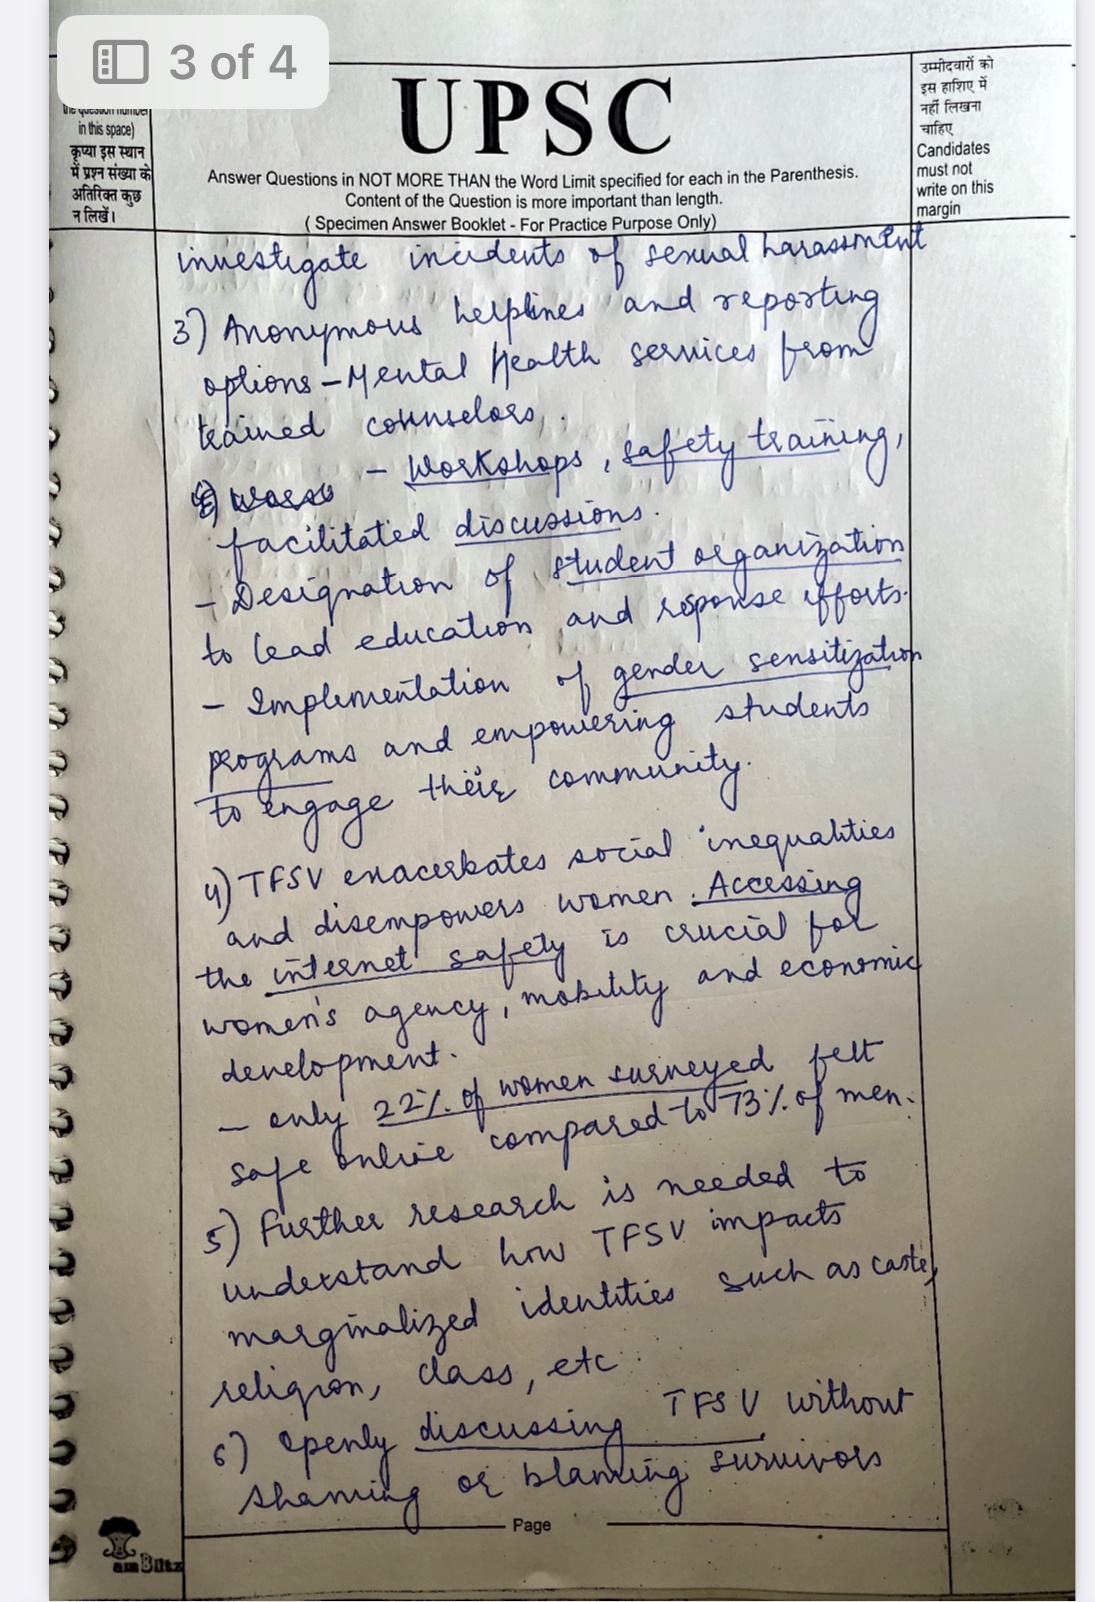 3 of 4
the question number
in this space)
कृप्या इस स्थान
में प्रश्न संख्या के
अतिरिक्त कुछ
न लिखें।
UPSC
Answer Questions in NOT MORE THAN the Word Limit specified for each in the Parenthesis.
Content of the Question is more important than length.
( Specimen Answer Booklet - For Practice Purpose Only)
उम्मीदवारों को
इस हाशिए में
नहीं लिखना
चाहिए
Candidates
must not
write on this
margin
investigate incidents of sexual harassment
3) Anonymous helplines and reporting
options - Mental Health services from
trained counselors.
- Workshops, safety training,
facilitated discussions.
- Designation of student organization
to lead education and reponse efforts.
- Implementation of gender sensitization
programs and empowering students
to engage their community.
4) TFSV exacerbates social inequalities
and disempowers women. Accessing
the internet safety is crucial for
women's agency, mobility and economic
development.
- only 22% of women surveyed felt
safe online compared to 73% of men.
5) Further research is needed to
understand how TFSV impacts
marginalized identities such as caste,
religion, class, etc.
6) Openly discussing TFSV without
shaming or blaming survivors
Page